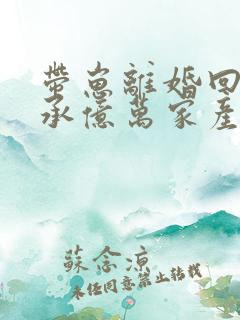 帶崽離婚回
承億萬家產
蘇念涼
未經同意禁止轉載